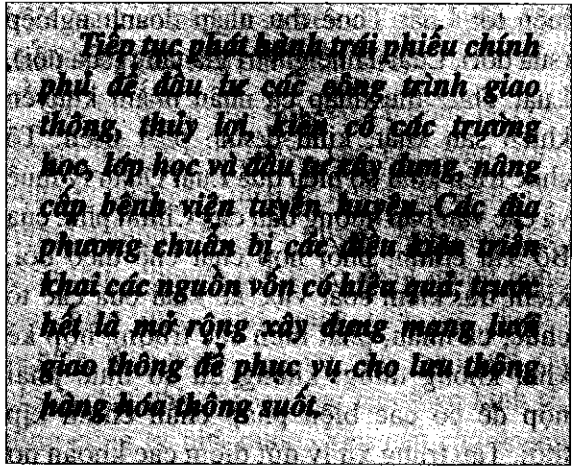 Tiếp tục phát hành trái phiếu chính
phủ để đầu tư các công trình giao
thông, thủy lợi, kiên cố các trường
học, lớp học và đầu tư xây dựng, nâng
cấp bệnh viện tuyến huyện. Các địa
phương chuẩn bị các điều kiện triển
khai các nguồn vốn có hiệu quả; trước
hết là mở rộng xây dựng mạng lưới
giao thông để phục vụ cho lưu thông
hàng hóa thông suốt.